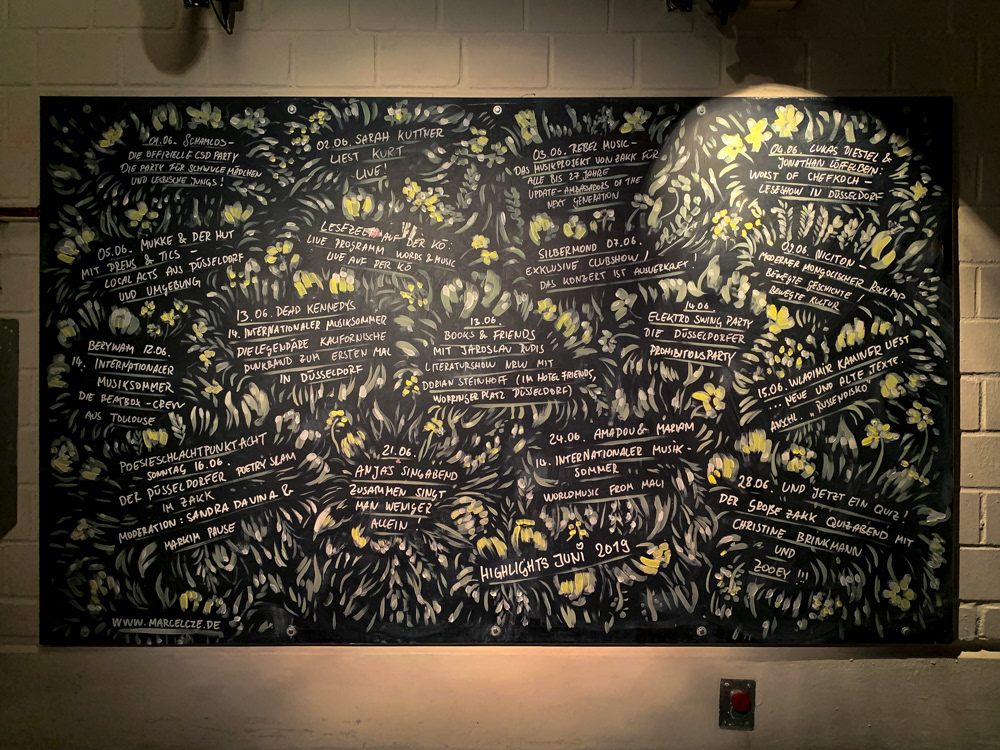 01.06. SCHAMLOS-
DIE OFFIZIELLE CSD PARTY
DIE PARTY FÜR SCHWULE MÄDCHEN
UND LESBISCHE JUNGS!
02.06. SARAH KUTTNER
LIEST KURT
LIVE!
03.06. REBEL MUSIC-
DAS MUSIKPROJEKT VON ZAKK FÜR
ALLE BIS 27 JAHRE
UPDATE-AMBASSADORS OF THE
NEXT GENERATION
04.06. LUKAS DIESTEL &
JONATHAN LÖFFELBEIN:
WORST OF CHEFKOCH-
LESESHOW IN DÜSSELDORF
05.06. MUKKE & DER HUT
MIT DREUS & TILS
LOCAL ACTS AUS DÜSSELDORF
UND UMGEBUNG
AUF DER KÖ:
LIVE PROGRAMM WORDS & MUSIC
LIVE AUF DER KÖ
SILBERMOND 07.06.
EXKLUSIVE CLUBSHOW!
DAS KONZERT IST AUSVERKAUFT!
MODERNER MONGOLISCHER ROCK POP
BEWEGTE GESCHICHTE!
BEWEGTE KULTUR
BERYWAM 12.06.
14. INTERNATIONALER
MUSIKSOMMER
DIE BEATBOX-CREW
AUS TOULOUSE
13.06. DEAD KENNEDYS
14. INTERNATIONALER MUSIKSOMMER
DIE LEGENDÄRE KALIFORNISCHE
PUNKBAND ZUM ERSTEN MAL
IN DÜSSELDORF
13.06.
BOOKS & FRIENDS
MIT JAROSLAV RUDIS
LITERATURSHOW NRW MIT
DORIAN STEINHOFF (IM HOTEL FRIENDS,
WORRINGER PLATZ DÜSSELDORF)
14.06
ELEKTRO SWING PARTY
DIE DÜSSELDORFER
PROHIBITONSPARTY
15.06. WLADIMIR KAMINER LIEST
... NEUE UND ALTE TEXTE.
ANSCHL. „RUSSENDISKO"
POESIESCHLACHTPUNKTACHT
SONNTAG 16.06. POETRY SLAM
DER DÜSSELDORFER
IM ZAKK
MODERATION: SANDRA DA VINA &
MARKIM PAUSE
21.06.
ANJAS SINGABEND
ZUSAMMEN SINGT
MAN WENIGER
ALLEIN!
24.06. AMADOU & MARIAM
14. INTERNATIONALER MUSIK-
SOMMER
WORLDMUSIC FROM MALI
28.06. UND JETZT EIN QUIZ!
DER GROßE ZAKK QUIZABEND MIT
CHRISTINE BRINKMANN
UND
ZOOEY !!!
HIGHLIGHTS JUNI 2019
WWW.MARCELCZE.DE